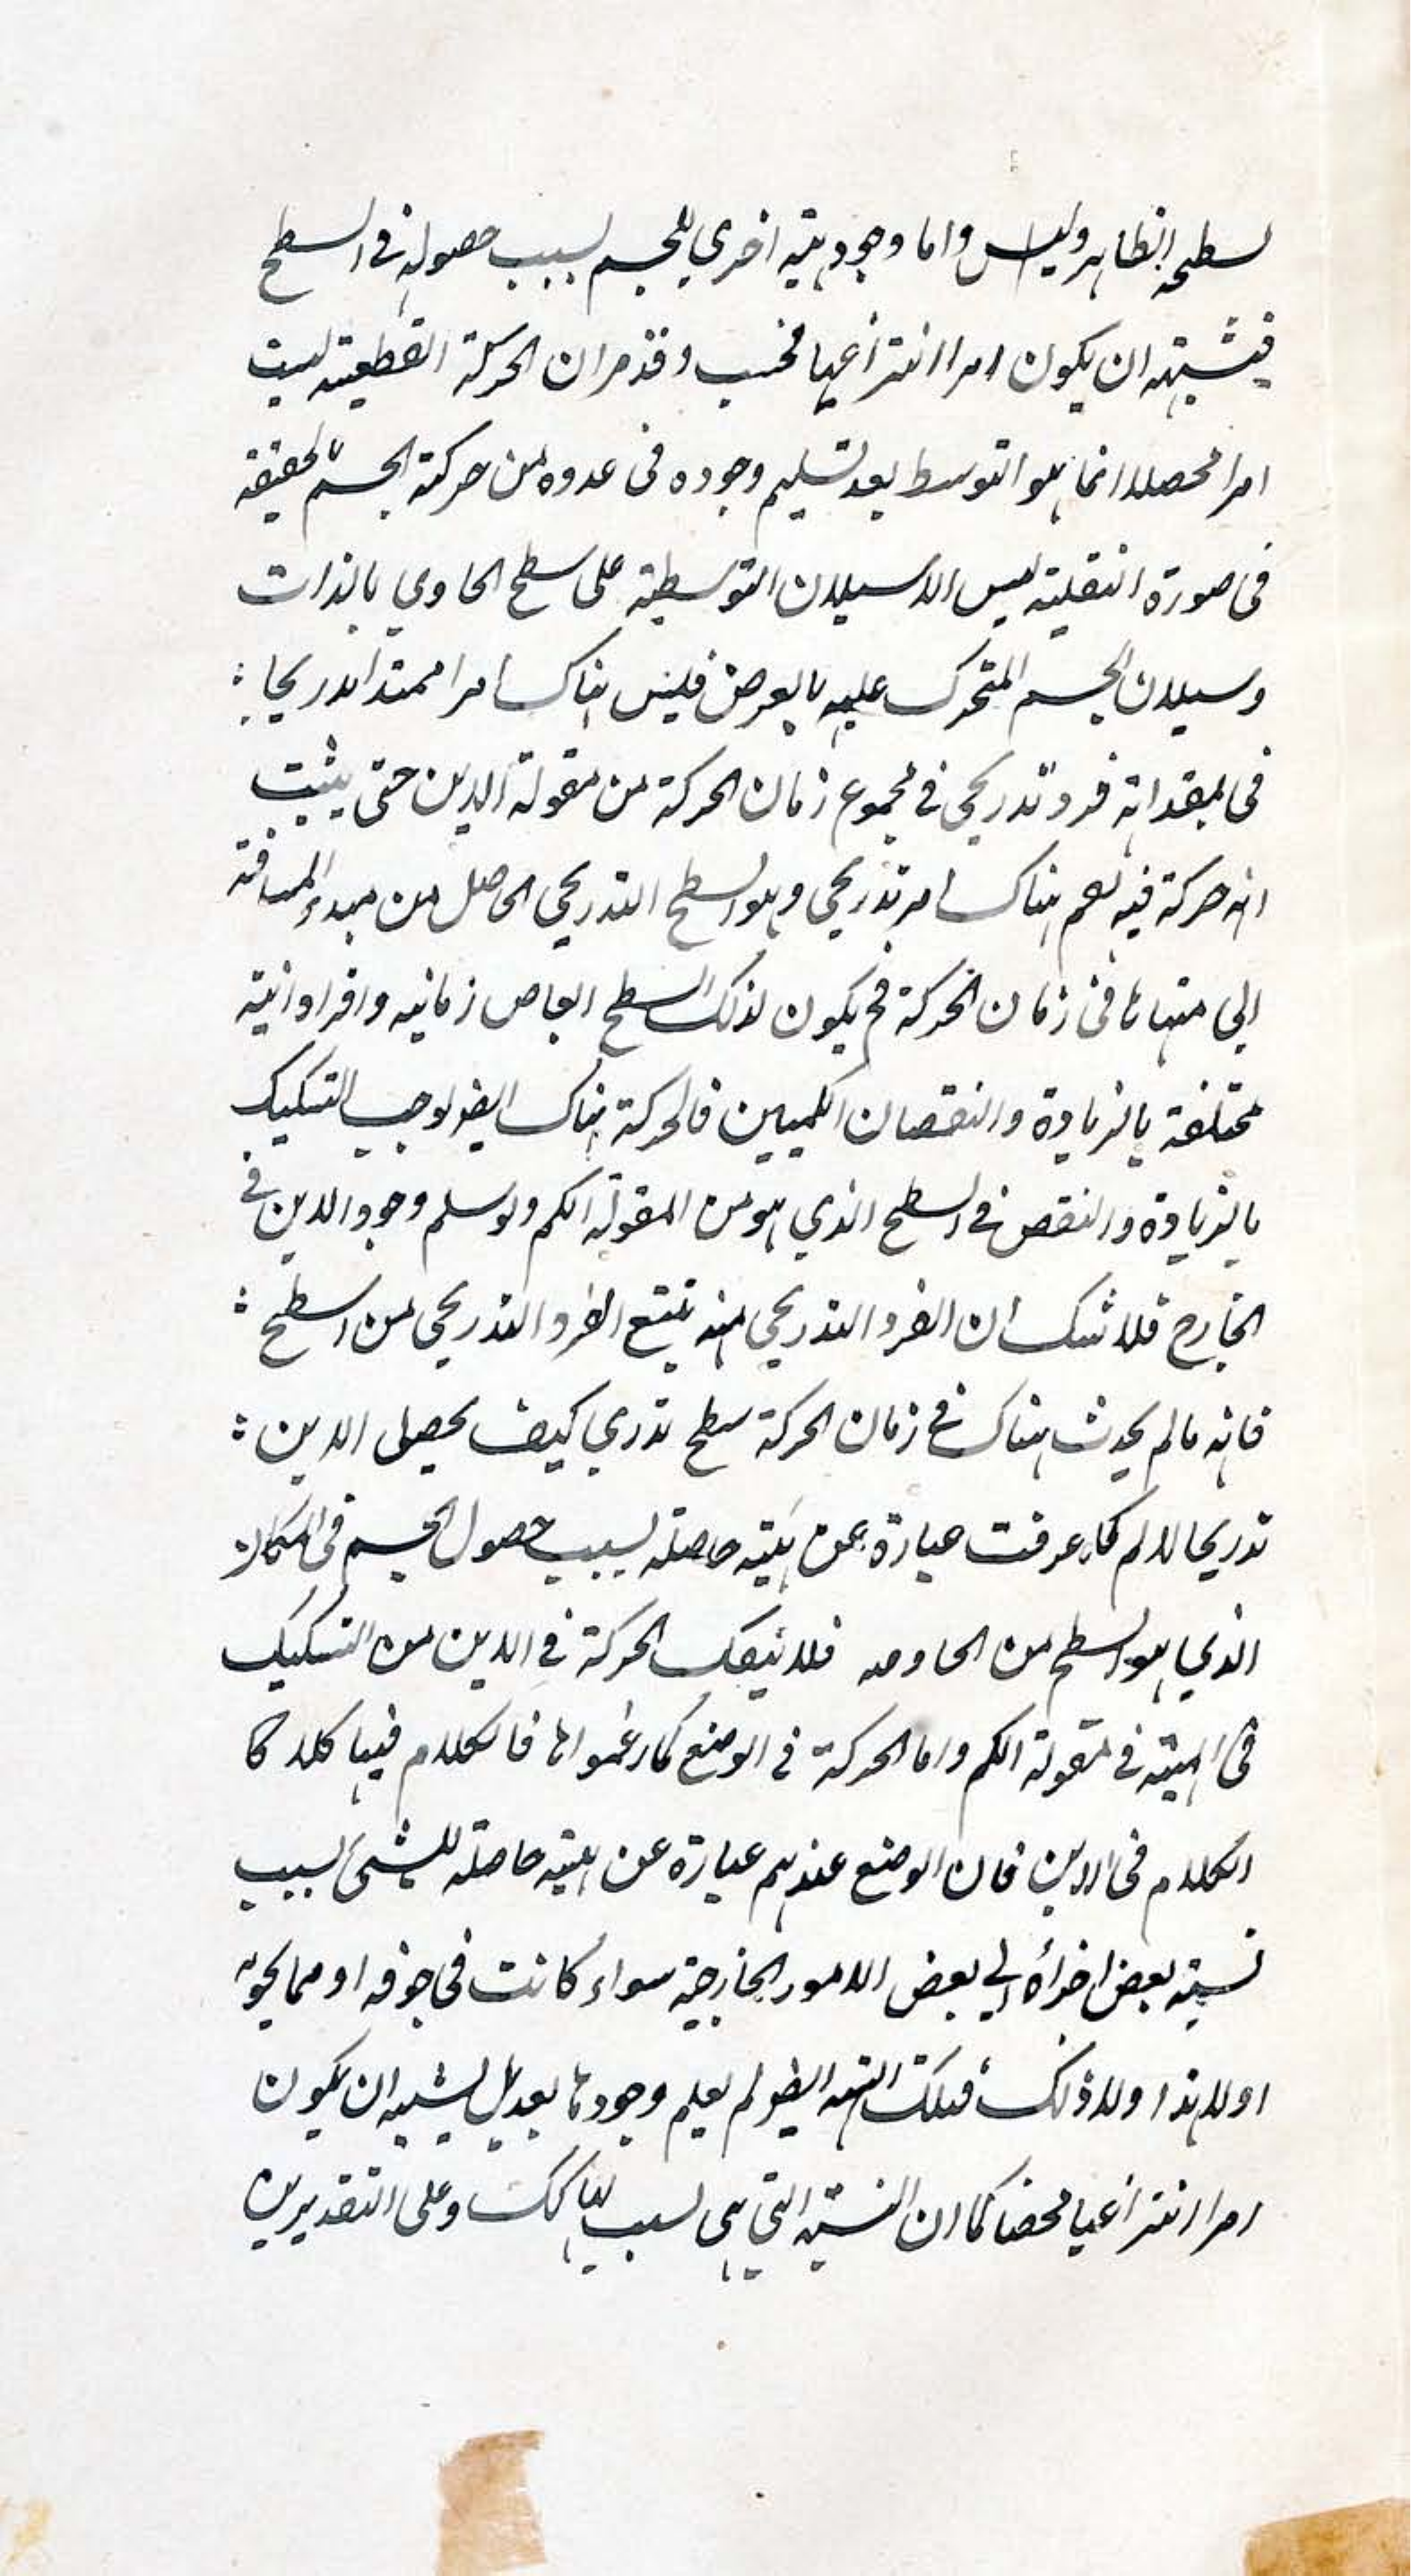 لسطحه الظاهر وليس واما وجود هيئة اخري للجسم لسبب حصوله في السطح
فيشبه ان يكون امرا انتزاعيا فحسب وقد مر ان الحركة القطعية ليست
امرا محصلا انما هو التوسط بعد تسليم وجوده في عدوه من حركة الجسم بالحقيقة
في صورة النقلية ليس الا سيلان التوسطية على سطح الحاوي بالذات
وسيلان الجسم المتحرك عليه بالعرض فليس هناك امرا ممتدا تدريجيا
في فرد تدريجي في مجموع زمان الحركة من مقولة الاين حتى يثبت
انه حركة فيه نعم هناك امر تدريجي وهو السطح التدريجي الحاصل من مبدء المسافة
الي منتهاها في زمان الحركة فح يكون لذلك السطح ابعاض زمانيه وافراد انية
مختلفة بالزيادة والنقصان الكميين فالحركة هناك ايضا لوجب التشكيك
بالزيادة والنقص في السطح الذي هو من المقولة الكم ولو سلم وجود الاين في
الخارج فلا شك ان الفرد التدريجي منه يتبع الفرد التدريجي من السطح
فانه ما لم يحدث هناك في زمان الحركة سطح تدري كيف يحصل الاين
تدريجا لا لم كما عرفت عبارة عن هيئة حاصلة لسبب حصول الجسم في المكان
الذي هو السطح من الحاوي فلا ينفك الحركة في الاين من التشكيك
في الهيئة في مقولة الكم واما الحركة في الوضع كما زعموا ها فالكلام فيها كلا كا
الكلام في الاين فان الوضع عندهم عبارة عن هيئة حاصلة للشئ لسبب
نسبة بعض اجزائه الي بعض الامور الخارجية سواء كانت في جوفه او مما يحويه
او لا هذا ولا ذلك فتلك الهيئة ايضا لم يعلم وجودها بعد بل يشبه ان يكون
امرا انتزاعيا محضا كما ان النسبة التي هي لسبب لها كك وعلى التقديرين